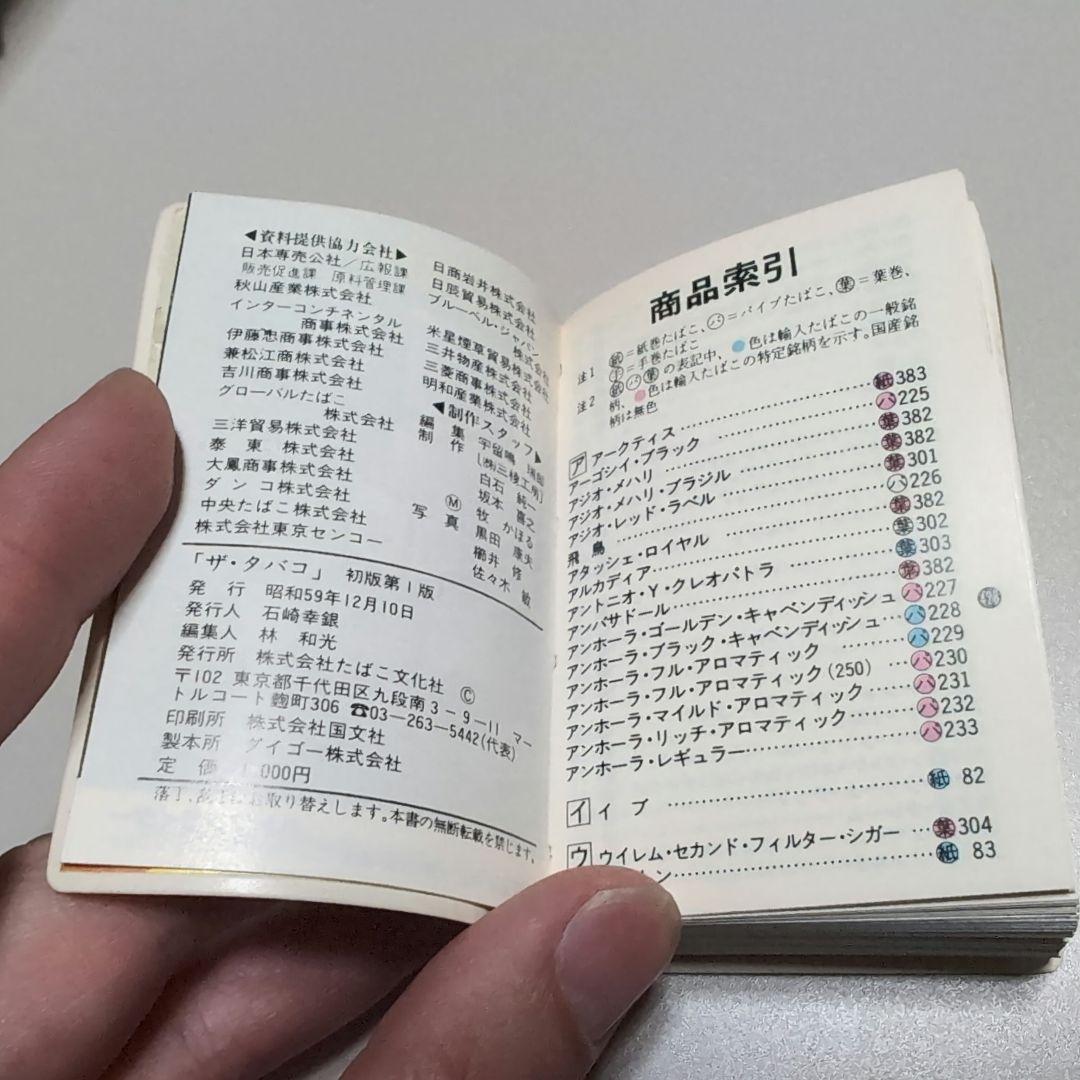 ◀資料提供協力会社▶
日本専売公社/広報課
販売促進課 原料管理課
秋山産業株式会社
インターコンチネンタル
商事株式会社
伊藤忠商事株式会社
兼松江商株式会社
吉川商事株式会社
グローバルたばこ
株式会社
三洋貿易株式会社
泰東株式会社
大鳳商事株式会社
ダンコ株式会社
中央たばこ株式会社
株式会社東京センコー
日商岩井株式会社
日辰貿易株式会社
ブルーベル・ジャパン
株式会社
米星煙草貿易株式会社
三井物産株式会社
三菱商事株式会社
明和産業株式会社
◀制作スタッフ▶
編集 宇留嶋
制作 [㈱三稜工房]
白石 純一
坂本 喜之
Ⓜ 牧 かほる
写真 黒田 康夫
櫛井 修
佐々木 敏
「ザ・タバコ」 初版第1版
発行 昭和59年12月10日
発行人 石崎幸銀
編集人 林 和光
発行所 株式会社たばこ文化社 Ⓒ
〒102 東京都千代田区九段南3-9-11 マー
トルコート麹町306 ☎03-263-5442(代表)
印刷所 株式会社国文社
製本所 ダイゴー株式会社
定価 1,000円
落丁、乱丁はお取り替えします。本書の無断転載を禁じます。
商品索引
注1 ㊢=紙巻たばこ、パ=パイプたばこ、葉=葉巻、
手=手巻たばこ
注2 紙パ葉の表記中、●色は輸入たばこの一般銘
柄、●色は輸入たばこの特定銘柄を示す。国産銘
柄は無色
ア アークティス……紙383
アーゴシイ・ブラック……パ225
アジオ・メハリ……葉382
アジオ・メハリ・ブラジル……葉382
アジオ・レッド・ラベル……葉301
飛鳥……パ226
アタッシェ・ロイヤル……葉382
アルカディア……葉302
アントニオ・Y・クレオパトラ……葉303
アンバサドール……葉382
アンホーラ・ゴールデン・キャベンディッシュ…パ227
アンホーラ・ブラック・キャベンディッシュ…パ228
アンホーラ・フル・アロマティック……パ229
アンホーラ・フル・アロマティック(250)…パ230
アンホーラ・マイルド・アロマティック……パ231
アンホーラ・リッチ・アロマティック……パ232
アンホーラ・レギュラー……パ233
イ イブ……紙 82
ウ ウイレム・セカンド・フィルター・シガー…葉304
トン……紙 83